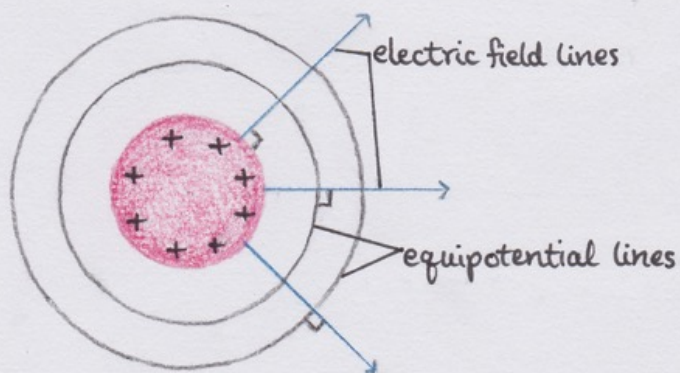 electric field lines
equipotential lines
+ +
+ +
+ +
+ +